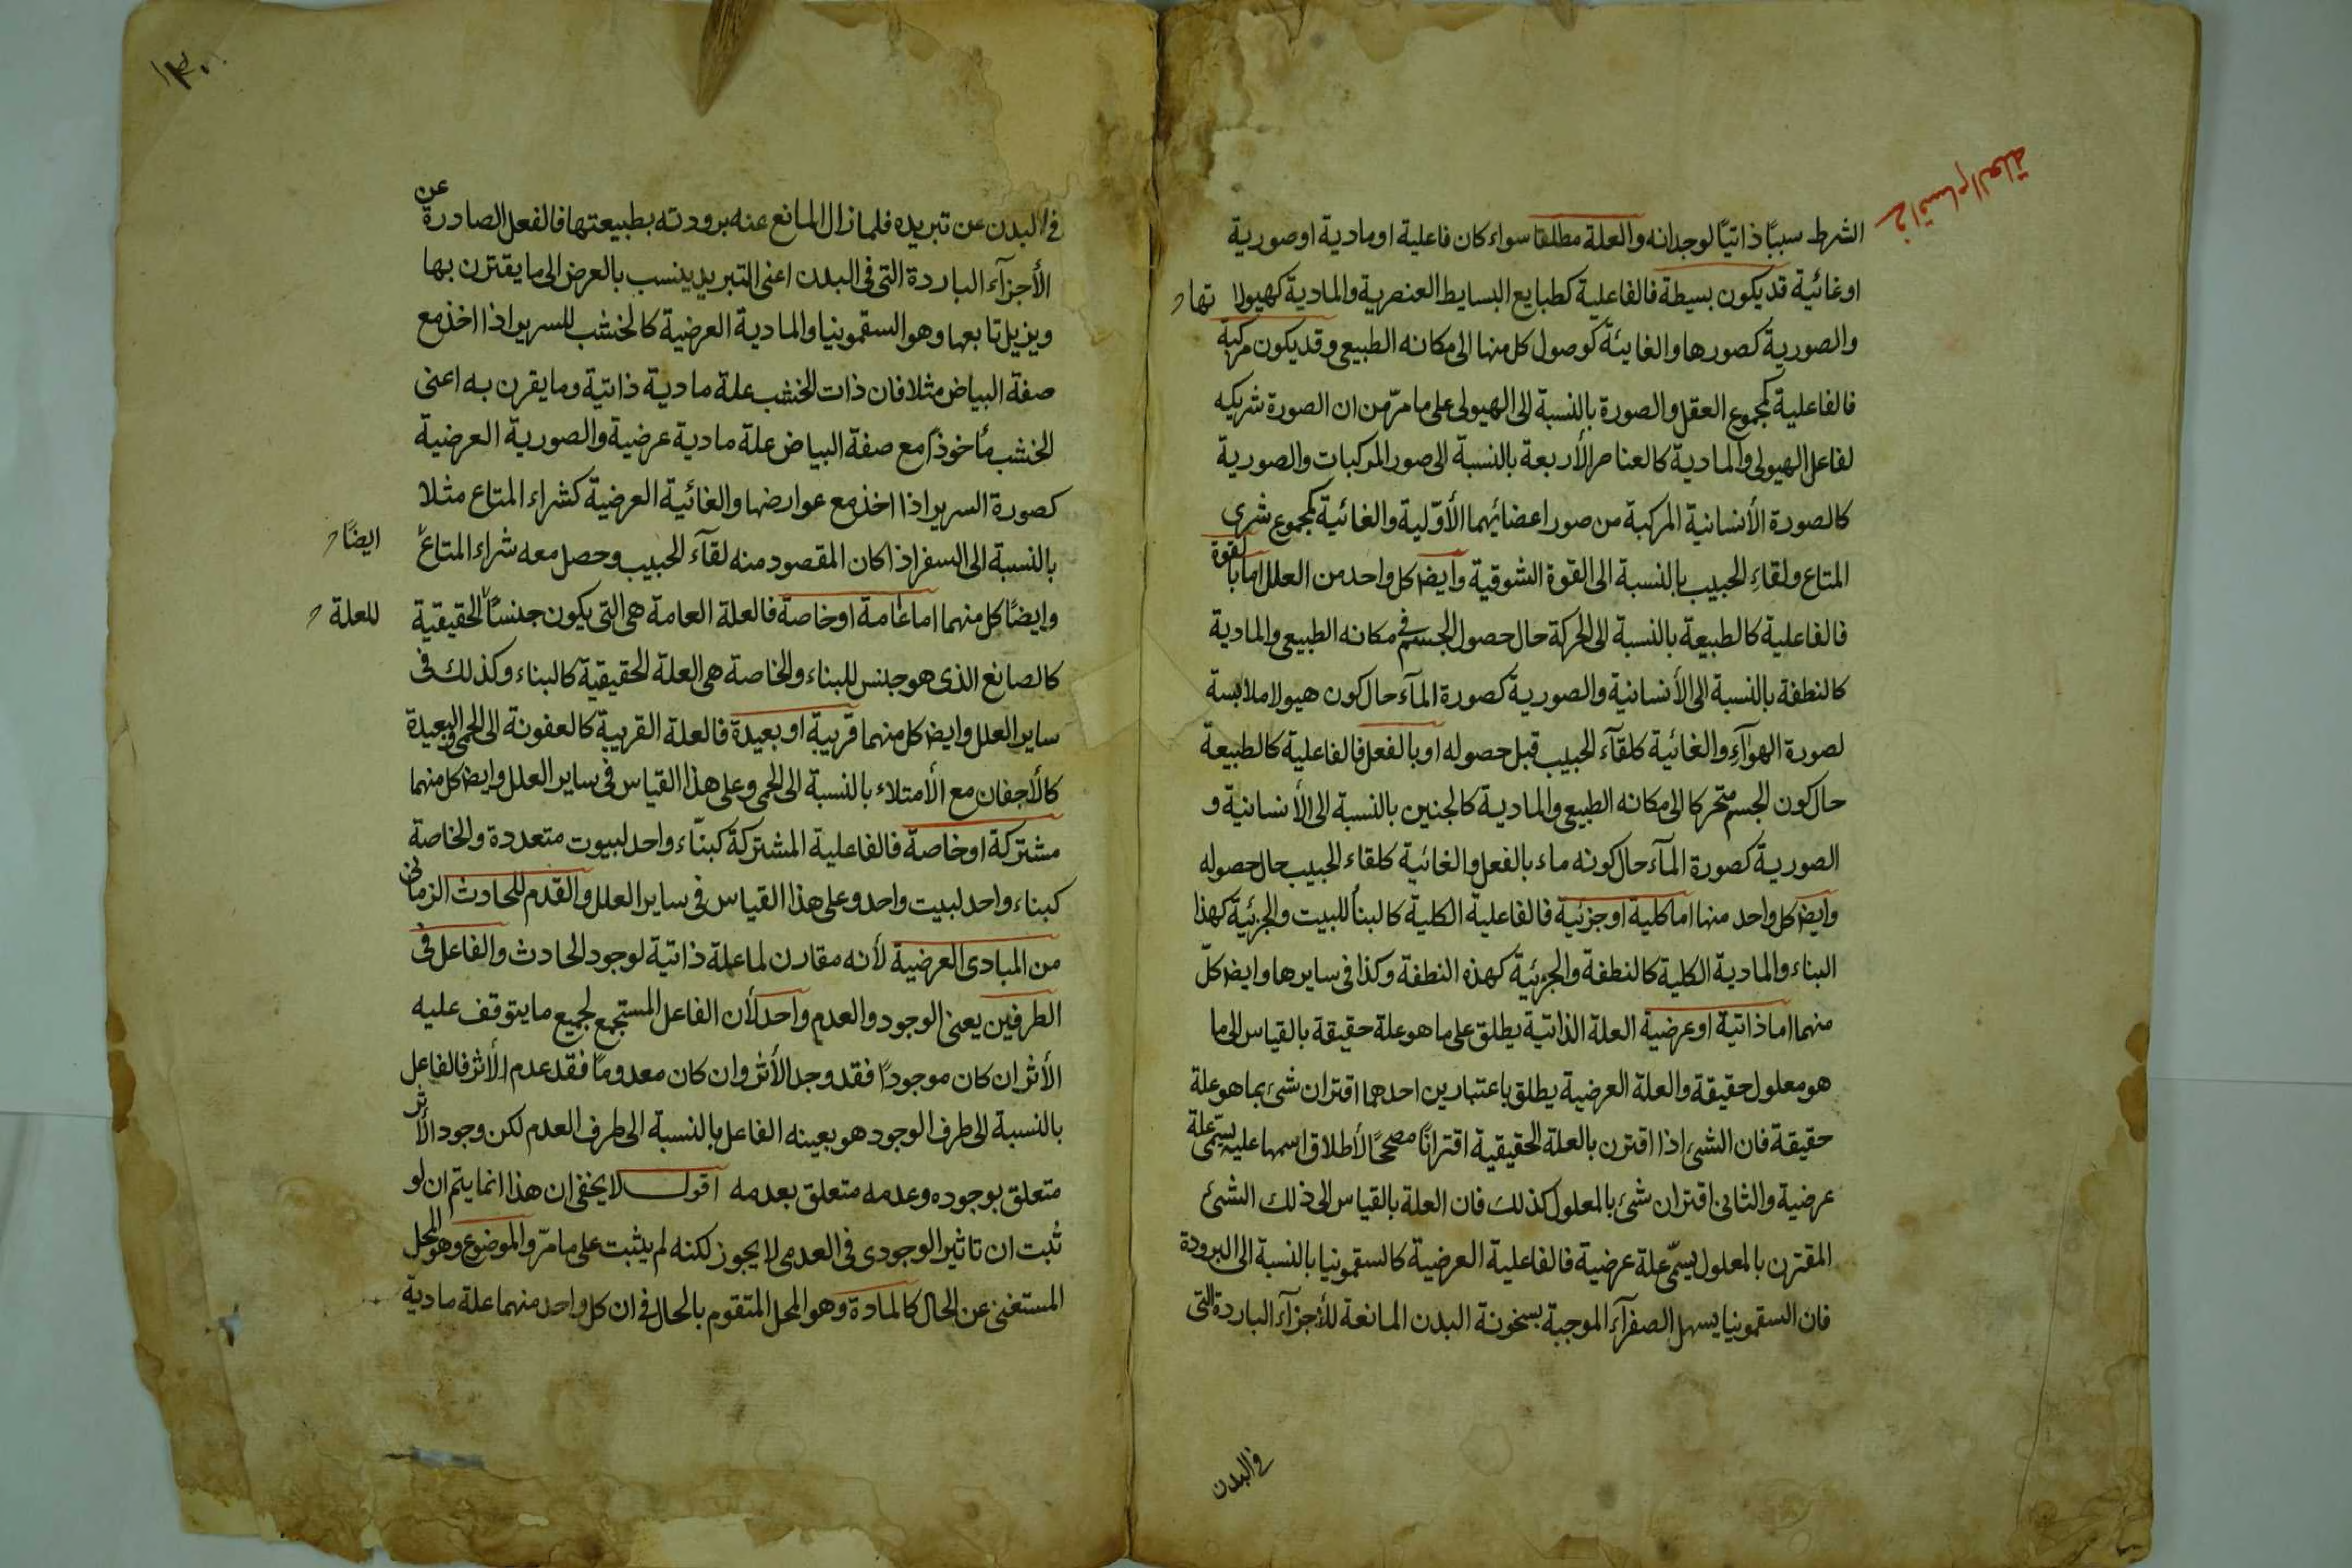 في اقسام العلة
الشرط سببًا ذاتيًا لوجدانه والعلة مطلقا سواء كان فاعلية او مادية او صورية
او غائية قد يكون بسيطة فالفاعلية كطبايع البسايط العنصرية والمادية كهيولاتها
والصورية كصورها والغائية كوصول كل منها الى مكانه الطبيعي وقد يكون مركبة
فالفاعلية كمجموع العقل والصورة بالنسبة الى الهيولى على ما مرّ من ان الصورة شريكه
لفاعل الهيولى والمادية كالعناصر الأربعة بالنسبة الى صور المركبات والصورية
كالصورة الأنسانية المركبة من صور اعضائهما الأوّلية والغائية كمجموع شرى
المتاع ولقاء الحبيب بالنسبة الى القوة الشوقية وايضا كل واحد من العلل اما بالقوة
فالفاعلية كالطبيعة بالنسبة الى الحركة حال حصول الجسم في مكانه الطبيعي والمادية
كالنطفة بالنسبة الى الأنسانية والصورية كصورة المآء حال كون هيولا ملابسة
لصورة الهوآء والغائية كلقآء الحبيب قبل حصوله او بالفعل فالفاعلية كالطبيعة
حال كون الجسم متحركا الى مكانه الطبيعي والمادية كالجنين بالنسبة الى الأنسانية و
الصورية كصورة المآء حال كونه ماء بالفعل والغائية كلقاء الحبيب حال حصوله
وايضا كل واحد منها اما كلية او جزئية فالفاعلية الكلية كالبنأ للبيت والجزئية كهذا
البناء والمادية الكلية كالنطفة والجزئية كهذه النطفة وكذا في سايرها وايضا كلّ
منهما اما ذاتية او عرضية العلة الذاتية يطلق على ما هو علة حقيقة بالقياس الى ما
هو معلول حقيقة والعلة العرضية يطلق باعتبارين احدهما اقتران شئ بما هو علة
حقيقة فان الشئ اذا اقترن بالعلة الحقيقية اقترانًا مصححًا لأطلاق اسمها عليه يسمّى علة
عرضية والثاني اقتران شئ بالمعلول كذلك فان العلة بالقياس الى ذلك الشئ
المقترن بالمعلول يسمّى علة عرضية فالفاعلية العرضية كالسقمونيا بالنسبة الى البرودة
فان السقمونيا يسهل الصفرآء الموجبة بسخونة البدن المانعة للأجزآء الباردة التى
في البدن
١٣٠
في البدن عن تبريده فلما زال المانع عنه برودته بطبيعتها فالفعل الصادرة عن
الأجزآء الباردة التى فى البدن اعنى التبريد ينسب بالعرض الى ما يقترن بها
ويزيل تابعها وهو السقمونيا والمادية العرضية كالخشب للسرير اذا اخذ مع
صفة البياض مثلا فان ذات الخشب علة مادية ذاتية وما يقرن به اعنى
الخشب مأخوذًا مع صفة البياض علة مادية عرضية والصورية العرضية
كصورة السرير اذا اخذ مع عوارضها والغائية العرضية كشراء المتاع مثلا
بالنسبة الى السفر اذا كان المقصود منه لقآء الحبيب وحصل معه شراء المتاع ايضًا
وايضًا كل منهما اما عامة او خاصة فالعلة العامة هى التى يكون جنسًا للعلة الحقيقية
كالصانع الذى هو جنس للبناء والخاصة هى العلة الحقيقية كالبناء وكذلك فى
ساير العلل وايضا كل منهما قريبة او بعيدة فالعلة القريبة كالعفونة الى الحمى والبعيدة
كالأجفان مع الأمتلاء بالنسبة الى الحمى وعلى هذا القياس فى ساير العلل وايضا كل منهما
مشتركة او خاصة فالفاعلية المشتركة كبنّاء واحد لبيوت متعددة والخاصة
كبناء واحد لبيت واحد وعلى هذا القياس فى ساير العلل والقدم للحادث الزمانى
من المبادى العرضية لأنه مقارن لما علة ذاتية لوجود الحادث والفاعل فى
الطرفين يعنى الوجود والعدم واحد لأن الفاعل المستجمع لجميع ما يتوقف عليه
الأثر ان كان موجودًا فقد وجد الأثر وان كان معدومًا فقد عدم الأثر فالفاعل
بالنسبة الى طرف الوجود هو بعينه الفاعل بالنسبة الى طرف العدم لكن وجود الأثر
متعلق بوجوده وعدمه متعلق بعدمه اقول لا يخفى ان هذا انما يتم ان لو
ثبت ان تاثير الوجودى فى العدمى لا يجوز لكنه لم يثبت على ما مرّ والموضوع وهو المحل
المستغنى عن الحال كالمادة وهو المحل المتقوم بالحال فى ان كل واحد منهما علة مادية